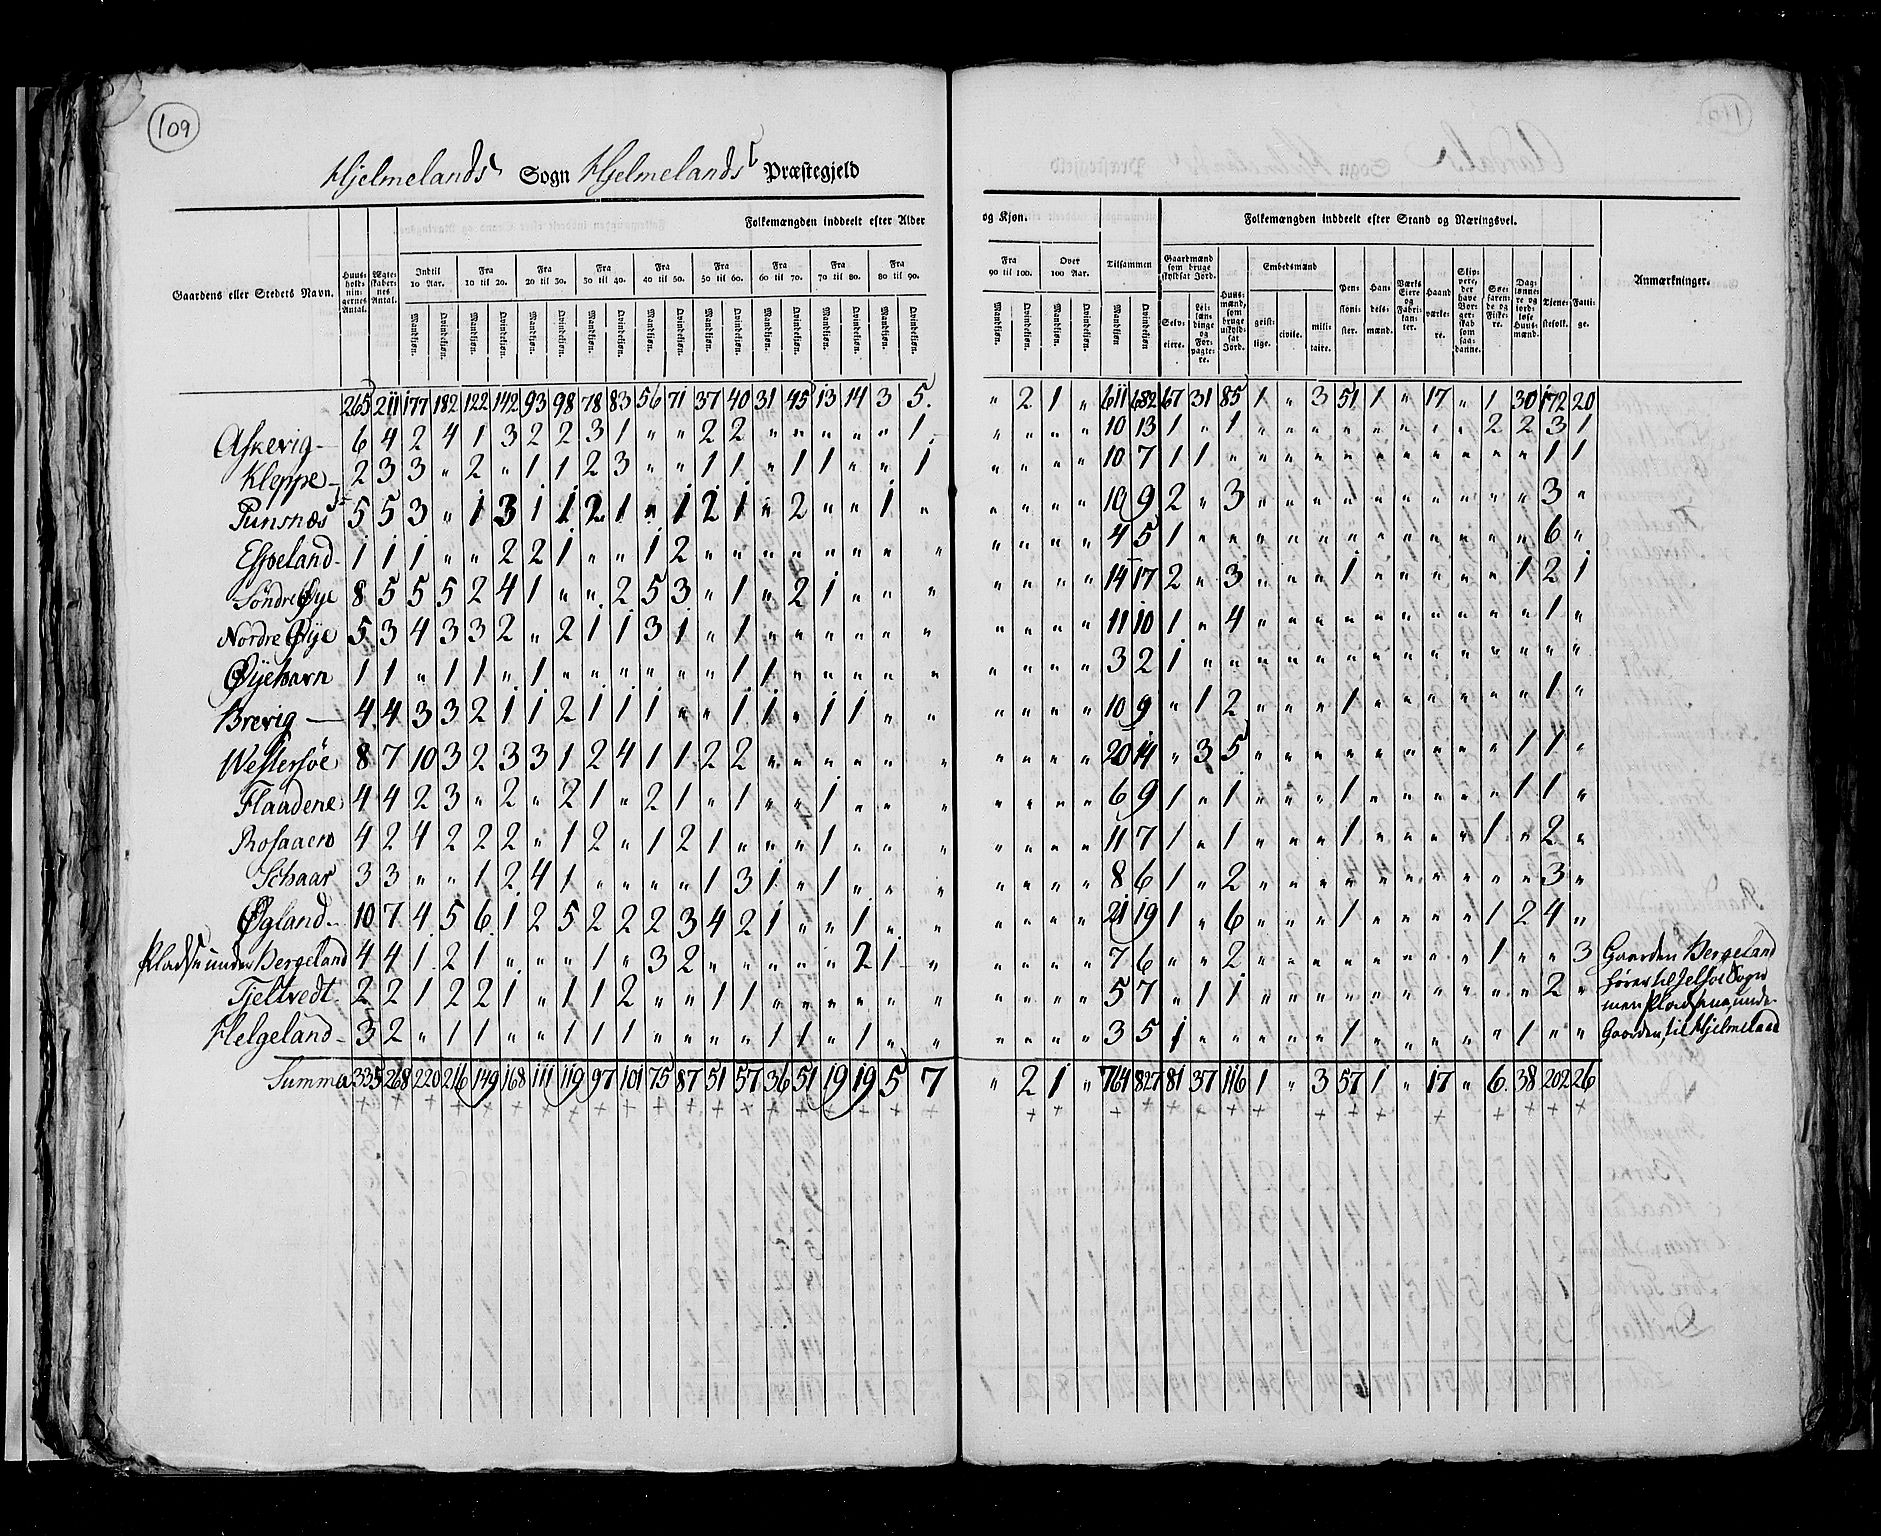 109
Hjelmelands Sogn Hjelmelands Præstegjeld
Gaardens eller Stedets Navn.
Huusholdningernes Antal.
Ægteskabernes Antal.
Folkemængden inddeelt efter Alder og Kjøn.
Indtil 10 Aar. Fra 10 til 20. Fra 20 til 30. Fra 30 til 40. Fra 40 til 50. Fra 50 til 60. Fra 60 til 70. Fra 70 til 80. Fra 80 til 90. Fra 90 til 100. Over 100 Aar. Tilsammen
Mandkjøn. Qvindekjøn. Mandkjøn. Qvindekjøn. Mandkjøn. Qvindekjøn. Mandkjøn. Qvindekjøn. Mandkjøn. Qvindekjøn. Mandkjøn. Qvindekjøn. Mandkjøn. Qvindekjøn. Mandkjøn. Qvindekjøn. Mandkjøn. Qvindekjøn. Mandkjøn. Qvindekjøn. Mandkjøn. Qvindekjøn. Mandkjøn. Qvindekjøn.
Folkemængden inddeelt efter Stand og Næringsvei.
Gaardmænd som bruge skyldsat Jord.
Selveiere. Leilændinge og Forpagtere.
Huusmænd, som bruge uskyldsat Jord.
Embedsmænd
geistlige. civile. militaire.
Pensionister.
Handelsmænd.
Værks Eiere og Fabrikanter.
Haandværkere.
Søefarende og Fiskere.
Dagleiønnere og jordløse Huusmænd.
Tjenestefolk.
Fattige.
Anmærkninger.
265 211 177 182 122 142 93 98 78 83 56 71 37 40 31 45 13 14 3 5. " 2 1 " 611 682 67 31 85 1 " 3 51 1 " 17 " 1 30 172 20
Askevig 6 4 2 4 1 3 2 2 3 1 " " 2 2 " " " " " 1 " " " " 10 13 1 " 1 " " " " " " " " 2 2 3 1
Kleppe 2 3 3 " 2 " 1 1 2 3 " " 1 1 " 1 1 " " 1 " " " " 10 7 1 1 " " " " " " " " " " " 1 1
5 5 3 " 1 3 1 1 2 1 " 1 2 1 " 2 " " 1 " " " " " 10 9 2 " 3 " " " " " " " " " " 3 "
Espeland 1 1 1 " " 2 2 1 " " 1 2 " " " " " " " " " " " " 4 5 1 " " " " " " " " " " " " 6 "
Søndre Øye 8 5 5 5 2 4 1 " " 2 5 3 " 1 " 2 1 " " " " " " " 14 17 2 " 3 " " " 1 " " " " " 1 2 1
Nordre Øye 5 3 4 3 3 2 " 2 1 1 3 1 " 1 " " " " " " " " " " 11 10 1 " 4 " " " " " " " " " " 1 "
Øyehavn 1 1 " 1 1 " 1 " " " " " " 1 1 " " " " " " " " " 3 2 1 " " " " " " " " " " " " " "
Brevig 4 4 3 3 2 1 1 2 1 1 1 " " 1 1 " 1 1 " " " " " " 10 9 " 1 2 " " " 1 " " " " " " 1 "
Westersöe 8 7 10 3 2 3 3 1 2 4 1 1 2 2 " " " " " " " " " " 20 14 " 3 5 " " " " " " " " " 1 1 "
Flaadene 4 4 2 3 " 2 " 2 1 " 2 1 " 1 " " 1 " " " " " " " 6 9 1 " 1 " " " 1 " " " " " 1 1 "
4 2 4 2 2 2 " 1 2 " 1 2 1 " " " 1 " " " " " " " 11 7 1 " 1 " " " 1 " " " " 1 " 2 "
Schaar 3 3 " " 1 2 4 1 " " " " 1 3 1 " 1 " " " " " " " 8 6 1 " 2 " " " " " " " " " " 3 "
Øgland 10 7 4 5 6 1 2 5 2 2 2 3 4 2 1 " " 1 " " " " " " 21 19 1 " 6 " " " 1 " " " " 1 2 4 "
Pladse under Bergeland 4 4 1 2 1 " " " 1 " 3 2 " " " " " 2 1 " " " " " 7 6 " " 2 " " " " " " " " 1 " " 3 Gaarden Bergeland
Tjeltvedt 2 2 1 2 2 1 " 1 1 2 " " 1 1 " " " " " " " " " " 5 7 " 1 1 " " " " " " " " " " 2 " hører til Jelsøe Sogn
men Pladsene under
Helgeland 3 2 " 1 1 " " 1 1 1 " " " " 1 1 " 1 " " " " " " 3 5 1 " " " " " 1 " " " " " 1 " " Gaarden, til Hjelmeland
Summa 335 268 220 216 149 168 111 119 97 101 75 87 51 57 36 51 19 19 5 7 " 2 1 " 764 827 81 37 116 1 " 3 57 1 " 17 " 6. 38 202 26